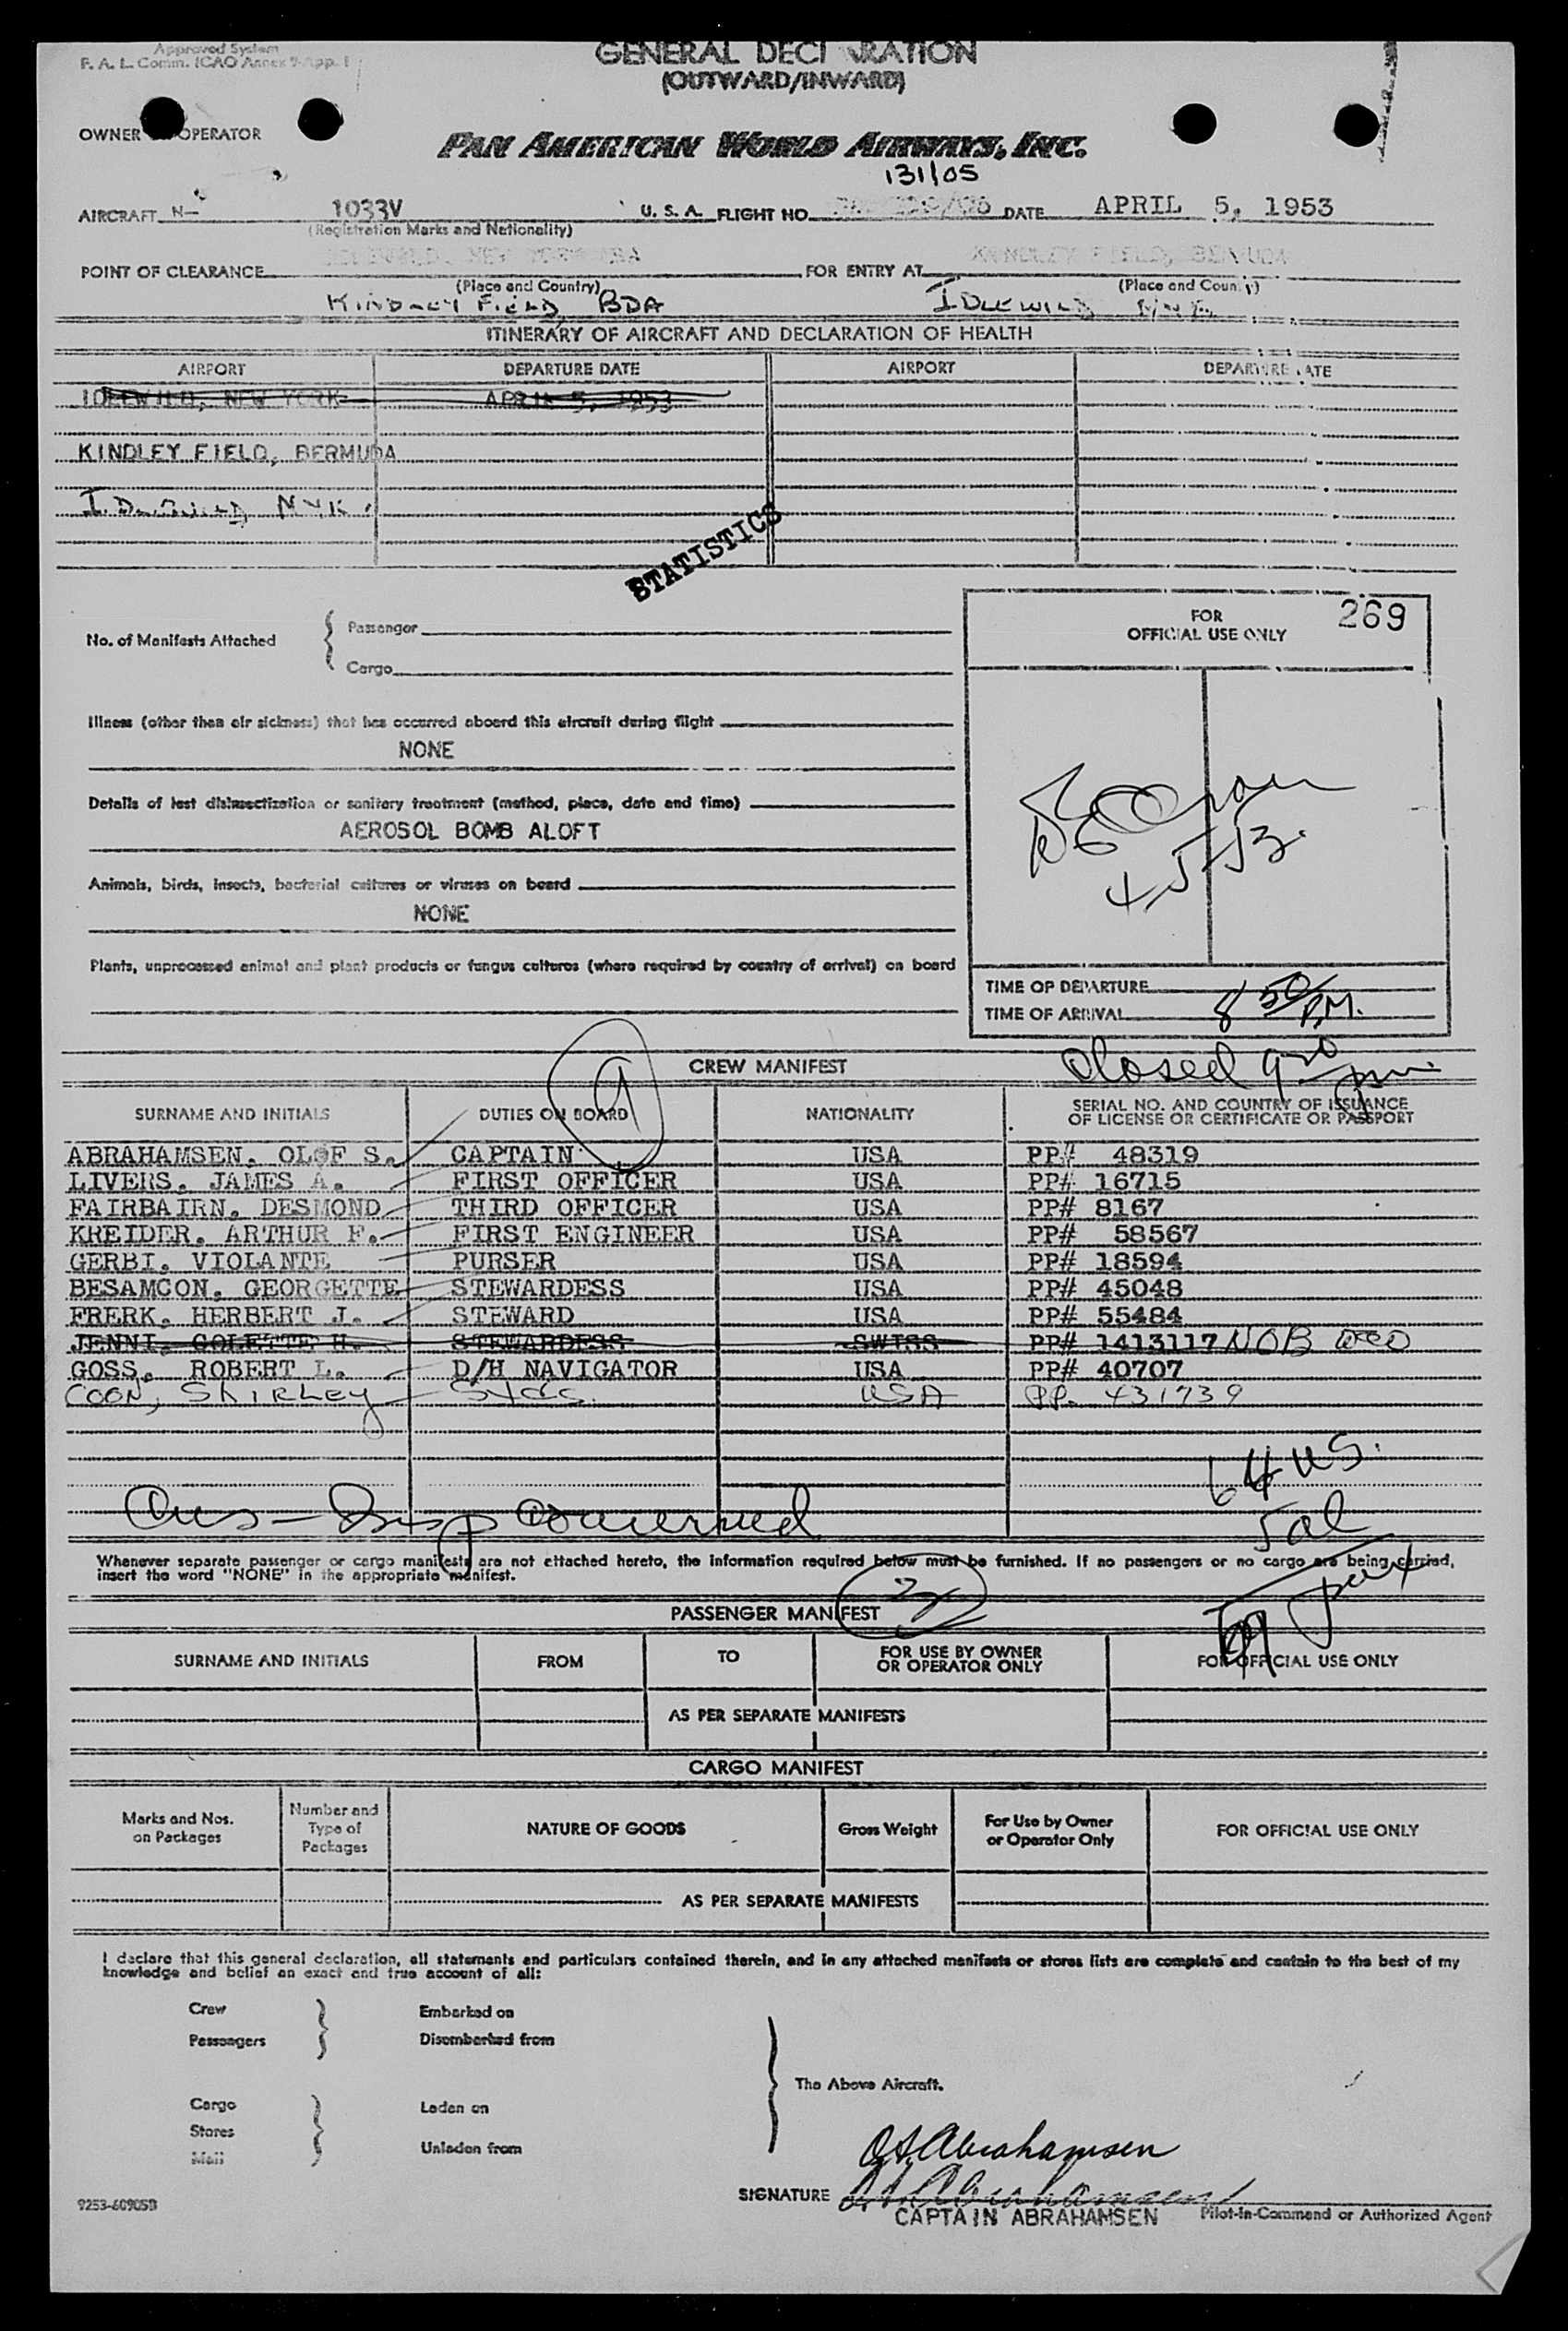 Approved System
F. A. L. Comm. ICAO Annex 9-App. 1
GENERAL DECLARATION
(OUTWARD/INWARD)
OWNER OPERATOR
PAN AMERICAN WORLD AIRWAYS, INC.
131/05
AIRCRAFT N- 1033V U. S. A. FLIGHT NO. DATE APRIL 5, 1953
(Registration Marks and Nationality)
POINT OF CLEARANCE FOR ENTRY AT KINDLEY FIELD, BERMUDA
(Place and Country) (Place and Country)
KINDLEY FIELD, BDA IDLEWILD
ITINERARY OF AIRCRAFT AND DECLARATION OF HEALTH
AIRPORT DEPARTURE DATE AIRPORT DEPARTURE DATE
IDLEWILD, NEW YORK APRIL 5, 1953
KINDLEY FIELD, BERMUDA
IDLEWILD NYK.
STATISTICS
FOR 269
OFFICIAL USE ONLY
No. of Manifests Attached
Passenger
Cargo
Illness (other than air sickness) that has occurred aboard this aircraft during flight
NONE
Details of last disinsectization or sanitary treatment (method, place, date and time)
AEROSOL BOMB ALOFT
4-5-53
Animals, birds, insects, bacterial cultures or viruses on board
NONE
Plants, unprocessed animal and plant products or fungus cultures (where required by country of arrival) on board
TIME OF DEPARTURE
TIME OF ARRIVAL 8 50 P.M.
CREW MANIFEST
Closed 9 20 pm
9
SURNAME AND INITIALS DUTIES ON BOARD NATIONALITY SERIAL NO. AND COUNTRY OF ISSUANCE
OF LICENSE OR CERTIFICATE OR PASSPORT
ABRAHAMSEN, OLOF S. CAPTAIN USA PP# 48319
LIVERS, JAMES A. FIRST OFFICER USA PP# 16715
FAIRBAIRN, DESMOND THIRD OFFICER USA PP# 8167
KREIDER, ARTHUR F. FIRST ENGINEER USA PP# 58567
GERBI, VIOLANTE PURSER USA PP# 18594
BESAMCON, GEORGETTE STEWARDESS USA PP# 45048
FRERK, HERBERT J. STEWARD USA PP# 55484
JENNI, COLETTE H. STEWARDESS SWISS PP# 1413117 NOB
GOSS, ROBERT L. D/H NAVIGATOR USA PP# 40707
COON, SHIRLEY STDS. USA PP. 431739
64 US.
5 al
Whenever separate passenger or cargo manifests are not attached hereto, the information required below must be furnished. If no passengers or no cargo are being carried,
insert the word "NONE" in the appropriate manifest.
PASSENGER MANIFEST
SURNAME AND INITIALS FROM TO FOR USE BY OWNER
OR OPERATOR ONLY FOR OFFICIAL USE ONLY
AS PER SEPARATE MANIFESTS
CARGO MANIFEST
Marks and Nos.
on Packages
Number and
Type of
Packages
NATURE OF GOODS
Gross Weight
For Use by Owner
or Operator Only
FOR OFFICIAL USE ONLY
AS PER SEPARATE MANIFESTS
I declare that this general declaration, all statements and particulars contained therein, and in any attached manifests or stores lists are complete and contain to the best of my
knowledge and belief an exact and true account of all:
Crew Embarked on
Passengers Disembarked from
The Above Aircraft.
Cargo Laden on
Stores
Mail Unladen from
O.S. Abrahamsen
SIGNATURE O.S. Abrahamsen
CAPTAIN ABRAHAMSEN Pilot-in-Command or Authorized Agent
9253-60905B